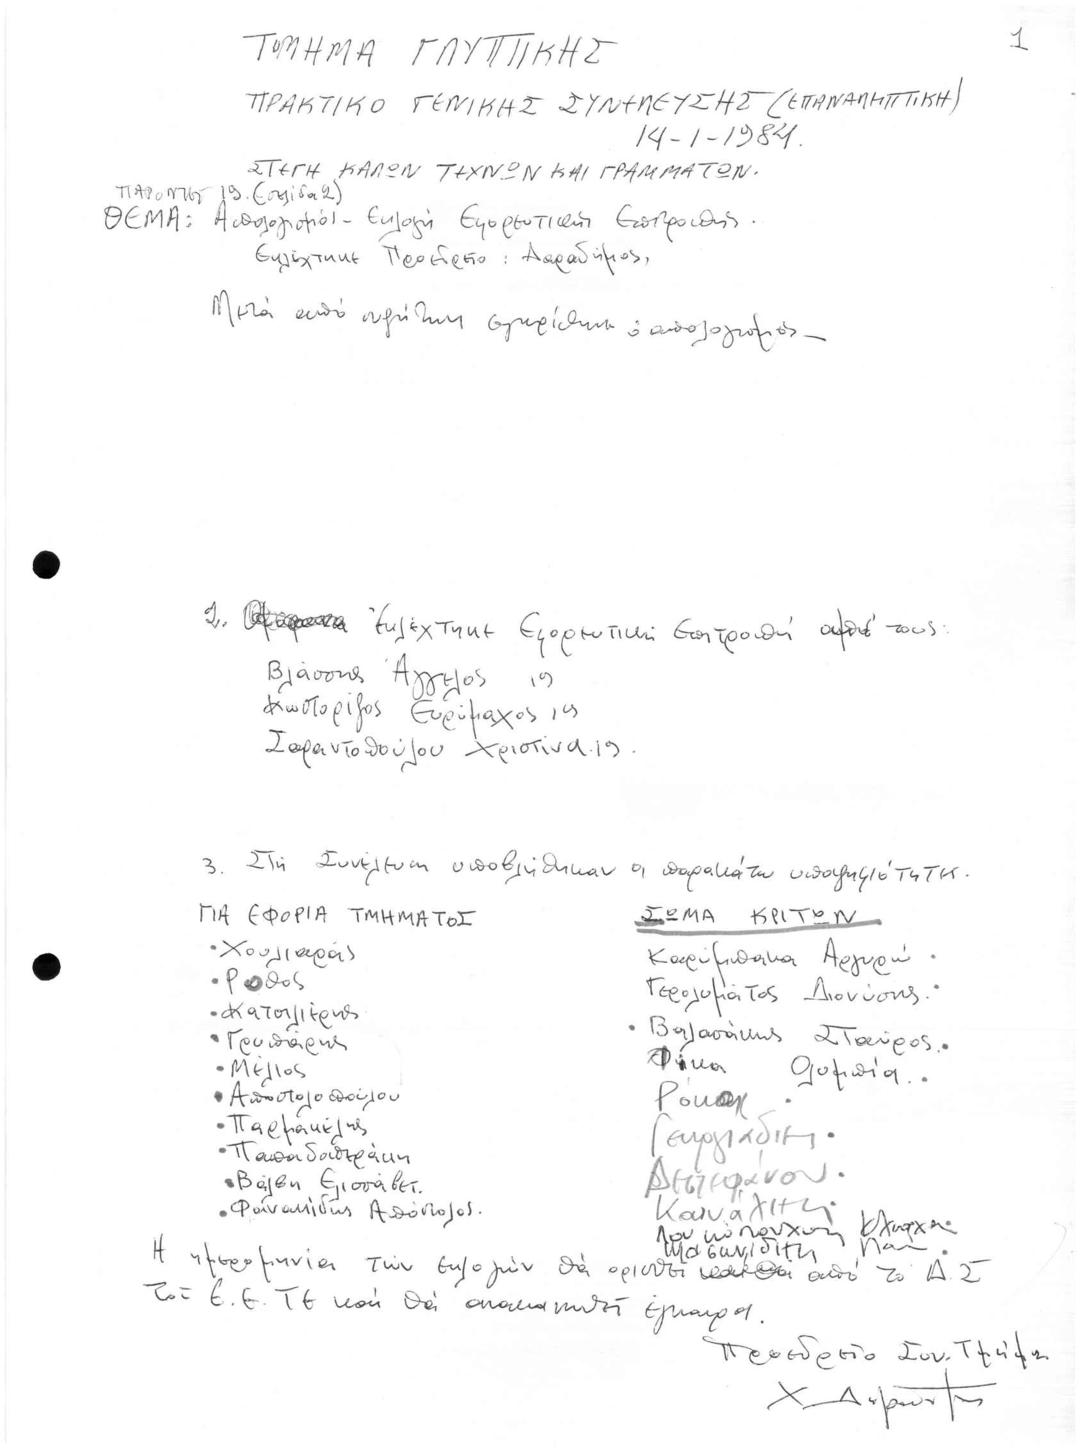 1
ΤΜΗΜΑ ΓΛΥΠΤΙΚΗΣ
ΠΡΑΚΤΙΚΟ ΓΕΝΙΚΗΣ ΣΥΝΕΛΕΥΣΗΣ (ΕΠΑΝΑΛΗΠΤΙΚΗ)
14-1-1984.
ΣΤΕΓΗ ΚΑΛΩΝ ΤΕΧΝΩΝ ΚΑΙ ΓΡΑΜΜΑΤΩΝ.
ΠΑΡΟΝΤΕΣ 19. (σελίδα 2)
ΘΕΜΑ: Απολογισμός - Εκλογή Εφορευτικής Επιτροπής.
Εκλέχτηκε Προεδρείο:
Μετά από συζήτηση εγκρίθηκε ο απολογισμός -
2. Εκλέχτηκε Εφορευτική Επιτροπή από τους:
Βλάσσης Άγγελος 19
Κωστορίζος Ευρύμαχος 19
Σαραντοπούλου Χριστίνα 19.
3. Στη Συνέλευση υποβλήθηκαν οι παρακάτω
ΓΙΑ ΕΦΟΡΙΑ ΤΜΗΜΑΤΟΣ
ΣΩΜΑ ΚΡΙΤΩΝ
• Χουλιαράς
• Ρωθος
• Κατσιλιέρης
• Γρυπάρης
• Μέλιος
• Αποστολοπούλου
• Παρμακέλης
• Παπαδοπεράκη
• Βάλβη Ελισσάβετ.
• Φανακίδης Απόστολος.
Καρύμπακα Αργυρώ •
Γερολυμάτος Διονύσης •
• Βαλασάκης Σταύρος •
Φώκα Ολυμπία •
Ρόκος •
Γεωργιάδης •
Δεστεφάνου •
Καναλίτη
Η ημερομηνία των εκλογών θα ορισθεί από το Δ.Σ
του Ε.Ε.ΤΕ και θα ανακοινωθεί έγκαιρα.
Προεδρείο Συν. Τμήμ.
Χ.